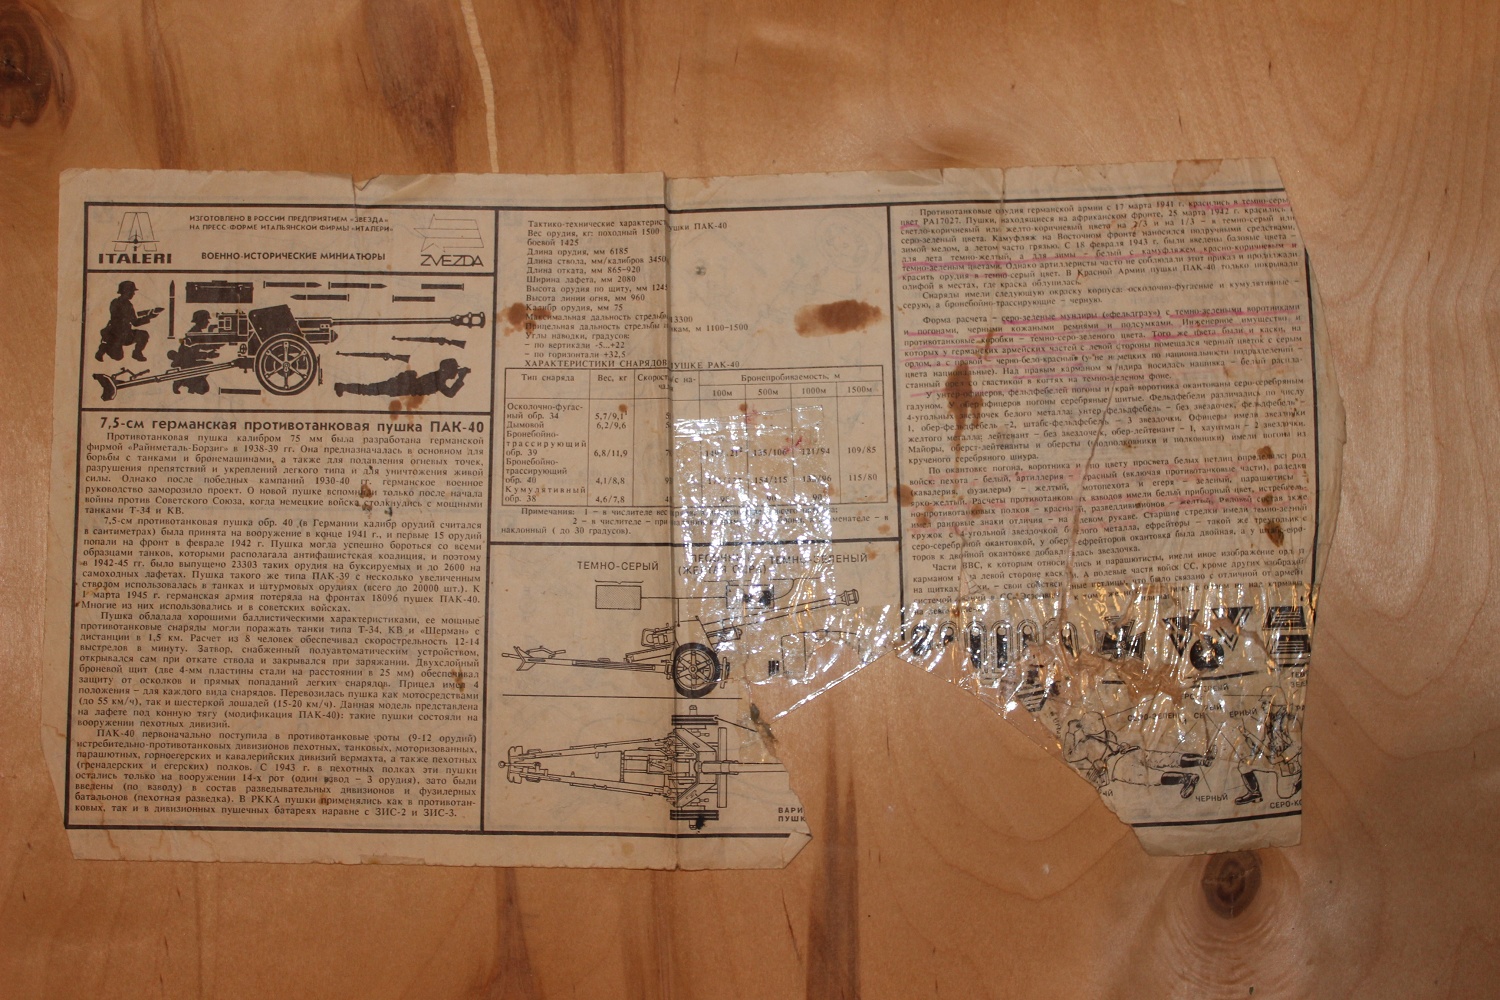 ИЗГОТОВЛЕНО В РОССИИ ПРЕДПРИЯТИЕМ «ЗВЕЗДА»
НА ПРЕСС-ФОРМЕ ИТАЛЬЯНСКОЙ ФИРМЫ «ИТАЛЕРИ»
ITALERI
ВОЕННО-ИСТОРИЧЕСКИЕ МИНИАТЮРЫ
ZVEZDA
7,5-см германская противотанковая пушка ПАК-40
Противотанковая пушка калибром 75 мм была разработана германской
фирмой «Райнметаль-Борзиг» в 1938-39 гг. Она предназначалась в основном для
борьбы с танками и бронемашинами, а также для подавления огневых точек,
разрушения препятствий и укреплений легкого типа и для уничтожения живой
силы. Однако после победных кампаний 1930-40 гг. германское военное
руководство заморозило проект. О новой пушке вспомнили только после начала
войны против Советского Союза, когда немецкие войска столкнулись с мощными
танками Т-34 и КВ.
7,5-см противотанковая пушка обр. 40 (в Германии калибр орудий считался
в сантиметрах) была принята на вооружение в конце 1941 г., и первые 15 орудий
попали на фронт в феврале 1942 г. Пушка могла успешно бороться со всеми
образцами танков, которыми располагала антифашистская коалиция, и поэтому
в 1942-45 гг. было выпущено 23303 таких орудия на буксируемых и до 2600 на
самоходных лафетах. Пушка такого же типа ПАК-39 с несколько увеличенным
стволом использовалась в танках и штурмовых орудиях (всего до 20000 шт.). К
1 марта 1945 г. германская армия потеряла на фронтах 18096 пушек ПАК-40.
Многие из них использовались и в советских войсках.
Пушка обладала хорошими баллистическими характеристиками, ее мощные
противотанковые снаряды могли поражать танки типа Т-34, КВ и «Шерман» с
дистанции в 1,5 км. Расчет из 8 человек обеспечивал скорострельность 12-14
выстрелов в минуту. Затвор, снабженный полуавтоматическим устройством,
открывался сам при откате ствола и закрывался при заряжании. Двухслойный
броневой щит (две 4-мм пластины стали на расстоянии в 25 мм) обеспечивал
защиту от осколков и прямых попаданий легких снарядов. Прицел имел 4
положения – для каждого вида снарядов. Перевозилась пушка как мотосредствами
(до 55 км/ч), так и шестеркой лошадей (15-20 км/ч). Данная модель представлена
на лафете под конную тягу (модификация ПАК-40): такие пушки состояли на
вооружении пехотных дивизий.
ПАК-40 первоначально поступила в противотанковые роты (9-12 орудий)
истребительно-противотанковых дивизионов пехотных, танковых, моторизованных,
парашютных, горноегерских и кавалерийских дивизий вермахта, а также пехотных
(гренадерских и егерских) полков. С 1943 г. в пехотных полках эти пушки
остались только на вооружении 14-х рот (один взвод – 3 орудия), зато были
введены (по взводу) в состав разведывательных дивизионов и фузилерных
батальонов (пехотная разведка). В РККА пушки применялись как в противотан-
ковых, так и в дивизионных пушечных батареях наравне с ЗИС-2 и ЗИС-3.
Тактико-технические характерис ушки ПАК-40
Вес орудия, кг: походный 1500
боевой 1425
Длина орудия, мм 6185
Длина ствола, мм/калибров 3450
Длина отката, мм 865-920
Ширина лафета, мм 2080
Высота орудия по щиту, мм 124
Высота линии огня, мм 960
Калибр орудия, мм 75
Максимальная дальность стрельбы 3300
Прицельная дальность стрельбы кам, м 1100-1500
Углы наводки, градусов:
– по вертикали -5...+22
– по горизонтали +32,5
ХАРАКТЕРИСТИКИ СНАРЯДОВ ПУШКЕ РАК-40
Тип снаряда Вес, кг Скорост Бронепробиваемость, м
100м 500м 1000м 1500м
Осколочно-фугас-
ный обр. 34 5,7/9,1
Дымовой 6,2/9,6
Бронебойно-
трассирующий
обр. 39 6,8/11,9 135/106 121/94 109/85
Бронебойно-
трассирующий
обр. 40 4,1/8,8 154/115 115/80
Кумулятивный
обр. 38 4,6/7,8
Примечания: 1 – в числителе
2 – в числителе – при
наклонный ( до 30 градусов).
ТЕМНО-СЕРЫЙ
ТЕМНО-ЗЕЛЕНЫЙ
ВАРИ
ПУШК
Противотанковые орудия германской армии с 17 марта 1941 г. красились в темно-серы
цвет РА17027. Пушки, находящиеся на африканском фронте, 25 марта 1942 г. красились
светло-коричневый или желто-коричневый цвета на 2/3 и на 1/3 – в темно-серый или
серо-зеленый цвета. Камуфляж на Восточном фронте наносился подручными средствами:
зимой мелом, а летом часто грязью. С 18 февраля 1943 г. были введены базовые цвета –
для лета темно-желтый, а для зимы – белый с камуфляжем красно-коричневым и
темно-зеленым цветами. Однако артиллеристы часто не соблюдали этот приказ и продолжали
красить орудия в темно-серый цвет. В Красной Армии пушки ПАК-40 только покрывали
олифой в местах, где краска облупилась.
Снаряды имели следующую окраску корпуса: осколочно-фугасные и кумулятивные –
серую, а бронебойно-трассирующие – черную.
Форма расчета – серо-зеленые мундиры («фельдграу») с темно-зелеными воротниками
и погонами, черными кожаными ремнями и подсумками. Инженерное имущество и
противотанковые коробки – темно-серо-зеленого цвета. Того же цвета были и каски, на
которых у германских армейских частей с левой стороны помещался черный цветок с серым
орлом, а с правой – черно-бело-красный (у не немецких по национальности подразделений –
цвета национальные). Над правым карманом мундира носилась нашивка – белый распла-
станный орел со свастикой в когтях на темно-зеленом фоне.
У унтер-офицеров, фельдфебелей погоны и край воротника окантованы серо-серебряным
галуном. У обер-офицеров погоны серебряные витые. Фельдфебели различались по числу
4-угольных звездочек белого металла: унтер-фельдфебель – без звездочек, фельдфебель –
1, обер-фельдфебель –2, штабс-фельдфебель – 3 звездочки. Офицеры имели звездочки
желтого металла: лейтенант – без звездочек, обер-лейтенант – 1, хауптман – 2 звездочки.
Майоры, оберст-лейтенанты и оберсты (подполковники и полковники) имели погоны из
крученого серебряного шнура.
По окантовке погона, воротника и по цвету просвета белых петлиц определялся род
войск: пехота – белый, артиллерия – красный (включая противотанковые части),
(кавалерия, фузилеры) – желтый, мотопехота и егеря – зеленый, парашютисты –
ярко-желтый. Расчеты противотанковых взводов имели белый приборный цвет, истребитель-
но-противотанковых полков – красный, разведдивизионов – желтый.
имел ранговые знаки отличия – на левом рукаве. Старшие стрелки имели темно-зеленый
кружок с 4-угольной звездочкой белого металла, ефрейторы – такой же треугольник с
серо-серебряной окантовкой, у обер-ефрейторов окантовка была двойная, а у штабс-ефрей-
торов к двойной окантовке добавлялась звездочка.
Части ВВС, к которым относились и парашютисты, имели иное изображение орла
ЧЕРНЫЙ
СЕРО-КО